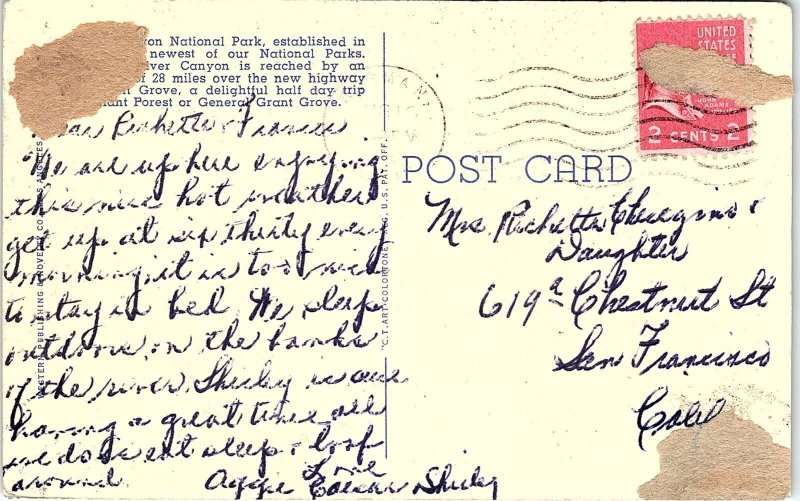 yon National Park, established in
newest of our National Parks.
ver Canyon is reached by an
of 28 miles over the new highway
Grove, a delightful half day trip
ant Forest or General Grant Grove.
Richetta & Frances
We are up here enjoying
this nice hot weather
get up at six thirty every
morning, it is too nice
to stay in bed, We sleep
outdoors, on the banks
of the river, Shirley is
having a great time all
we do is eat sleep & loaf
around.
Love
Caesar Shirley
C.T. ART-COLORTONE REG. U.S. PAT. OFF.
POST CARD
UNITED
STATES
JOHN
ADAMS
2 CENTS 2
Mrs Richetta &
Daughter
619a Chestnut St
San Francisco
Calif